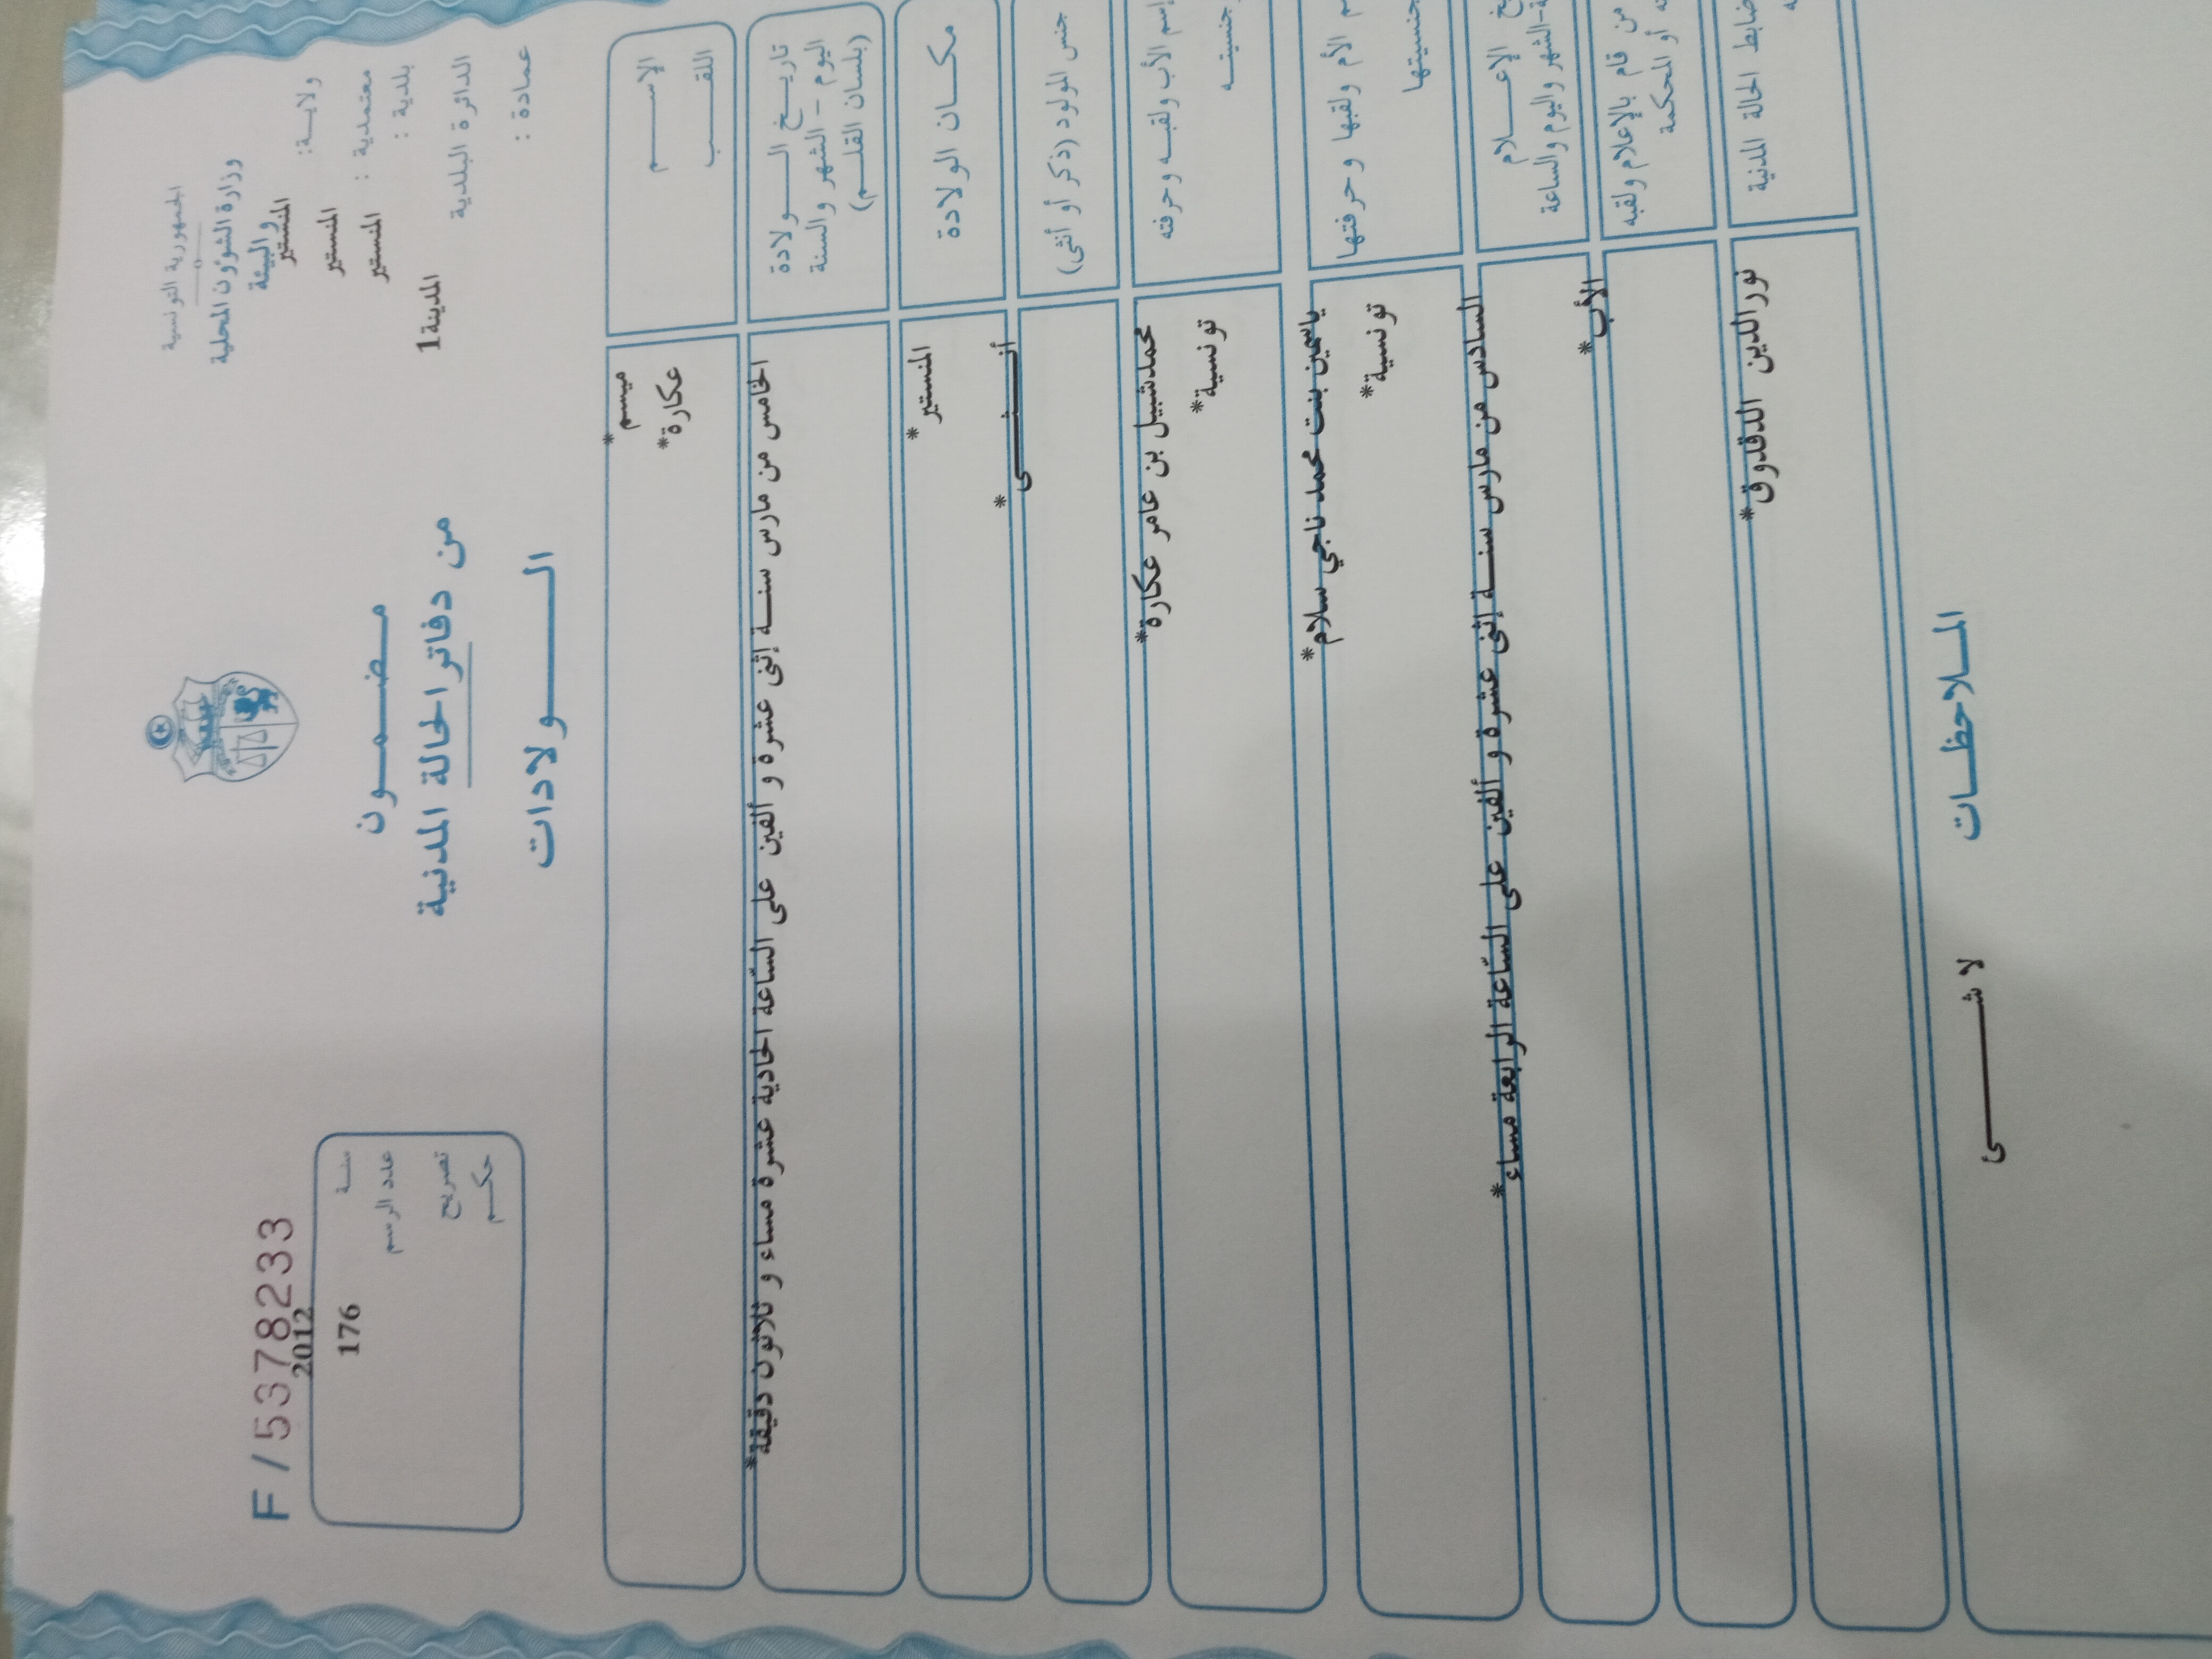 الجمهورية التونسية
وزارة الشؤون المحلية
والبيئة
ولاية: المنستير
معتمدية : المنستير
بلدية : المنستير
الدائرة البلدية المدينة 1
عمادة :
مضمون
من دفاتر الحالة المدنية
الولادات
F / 5378233
سنة 2012
عدد الرسم 176
تصريح
حكم
الاسم ميسم*
اللقب عكارة*
تاريخ الولادة
اليوم - الشهر والسنة
(بلسان القلم)
الخامس من مارس سنة إثنى عشرة و ألفين على الساعة الحادية عشرة مساء و ثلاثون دقيقة*
مكان الولادة المنستير*
جنس المولود (ذكر أو أنثى) أنثى*
إسم الأب ولقبه وحرفته محمدشبيل بن عامر عكارة*
جنسيته تونسية*
الأم ولقبها وحرفتها ياسمين بنت محمد ناجي سلام*
جنسيتها تونسية*
الإعلام
الشهر واليوم والساعة
السادس من مارس سنة إثنى عشرة و ألفين على الساعة الرابعة مساء*
من قام بالإعلام ولقبه الأب*
أو المحكمة
ضابط الحالة المدنية نورالدين الدقدوق*
الملاحظات
لا شئ